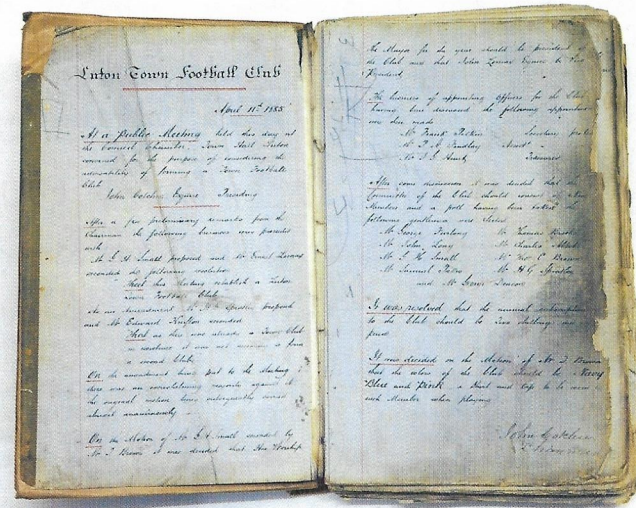 Luton Town Football Club
April 11th 1885
At a Public Meeting held this day at
the Council Chamber Town Hall Luton
convened for the purpose of considering the
advisability of forming a Town Football
Club
John Cotchin Esquire Presiding
After a few preliminary remarks from the
Chairman the following business was proceeded
with
Mr G. H. Small proposed and Mr
seconded the following resolution
That this Meeting establish a Luton
Town Football Club
As an Amendment Mr proposed
and Mr Edward seconded
That as there was already a Town Club
in existence it was not necessary to form
a second Club
On the amendment being put to the Meeting
there was an overwhelming majority against it
the original motion being subsequently carried
almost unanimously
On the Motion of Mr G H Small seconded by
Mr J Brown it was decided that His Worship
the Mayor for the year should be president of
the Club and that John Esquire be Vice
President
The business of appointing Officers for the Club
having been discussed the following appointments
were then made
Mr Frank Secretary
Mr
Mr Hunt Treasurer
After some discussion it was decided that the
Committee of the Club should consist of
Members and a poll having been taken the
following gentlemen were elected
Mr George Mr Thomas
Mr John Long Mr Charles
Mr G H Small Mr C Brown
Mr Samuel Mr H G Spratley
and Mr George Deacon
It was resolved that the annual subscription
to the Club should be shillings
It was decided on the Motion of Mr J Brown
that the colors of the Club should be Navy
Blue and Pink a Shirt and Cap to be worn
each Member when playing
John Cotchin